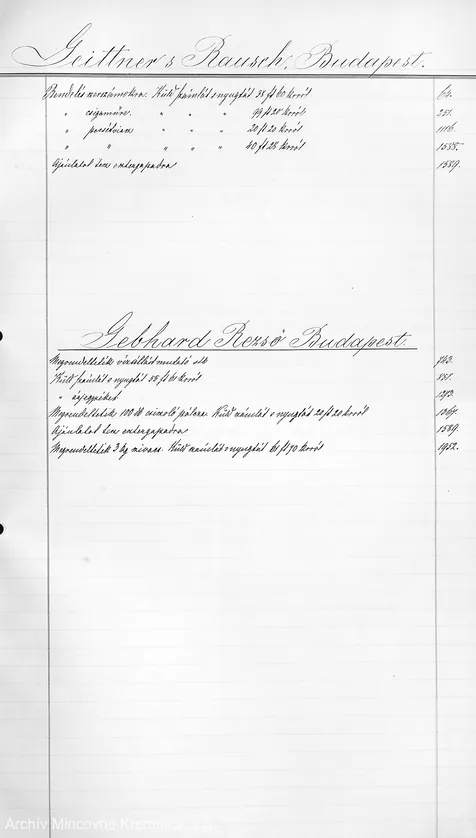 Geittner s Rausch, Budapest.
Rendelés Küld számlát s nyugtát 38 ft 60 krról 64.
" csigaműre. " " " 99 ft 28 krról 251.
" " " " 20 ft 20 krról 1116.
" " " " " 40 ft 28 krról 1585.
Ajánlatot tesz esztergapadra 1589.
Gebhard Rezső Budapest.
Megrendeltetik vízállást mutató stb 743.
Küld számlát s nyugtát 55 ft 61 krról 881.
" árjegyzéket 1293.
Megrendeltetik 100 Küld számlát s nyugtát 20 ft 20 krról 1367.
Ajánlatot tesz esztergapadra 1589.
Megrendeltetik 3 kg Küld számlát s nyugtát 61 ft 70 krról 1952.
Archív Mincovne Kremnica